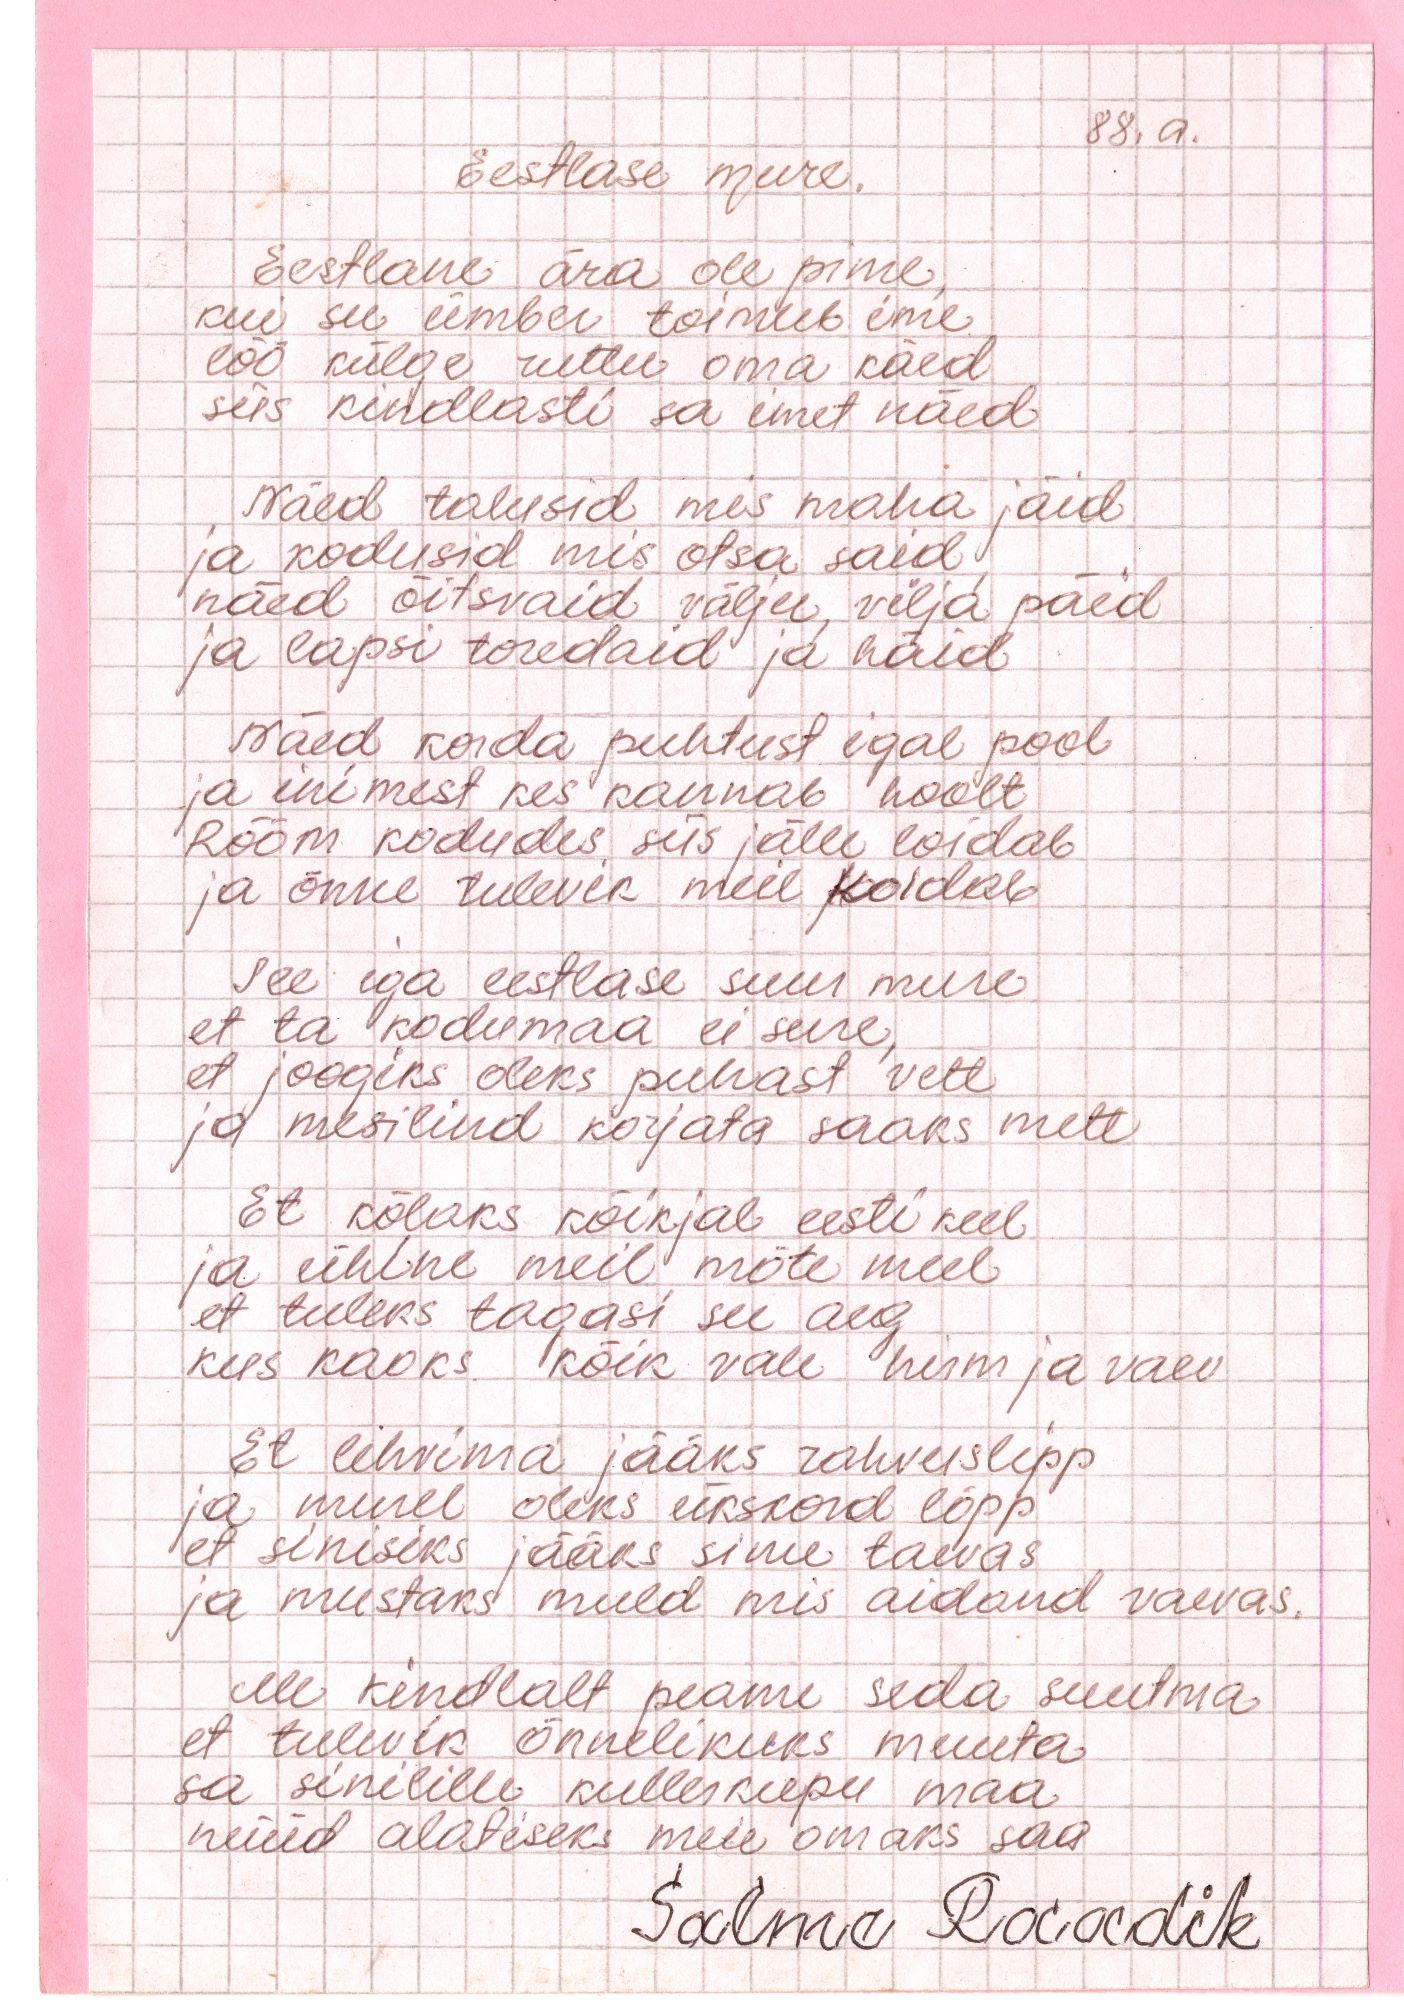 88. a.
Eestlase mure.
Eestlane ära ole pime,
kui su ümber toimub ime
löö külge ruttu oma käed
siis kindlasti sa imet näed
Näed talusid mis maha jäid
ja kodusid mis otsa said,
näed õitsvaid välju, vilja päid
ja lapsi toredaid ja häid
Näed korda puhtust igal pool
ja inimest kes kannab hoolt
Rõõm kodudes siis jälle loidab
ja õnne tulevik meil koidab
See iga eestlase suur mure
et ta kodumaa ei sure,
et joogiks oleks puhast vett
ja mesilind korjata saaks mett
Et kõlaks kõikjal eesti keel
ja ühine meil mõte meel
et tuleks tagasi see aeg
kus kaoks kõik vale hirm ja vaev
Et lehvima jääks rahvuslipp
ja murel oleks ükskord lõpp
et siniseks jääks sinine taevas
ja mustaks muld mis aidand vaevas.
Me kindlalt peame seda suutma
et tulevik õnnelikuks muuta
sa sinilille kullerkupu maa
nüüd alatiseks meie omaks saa
Salme Raaadik